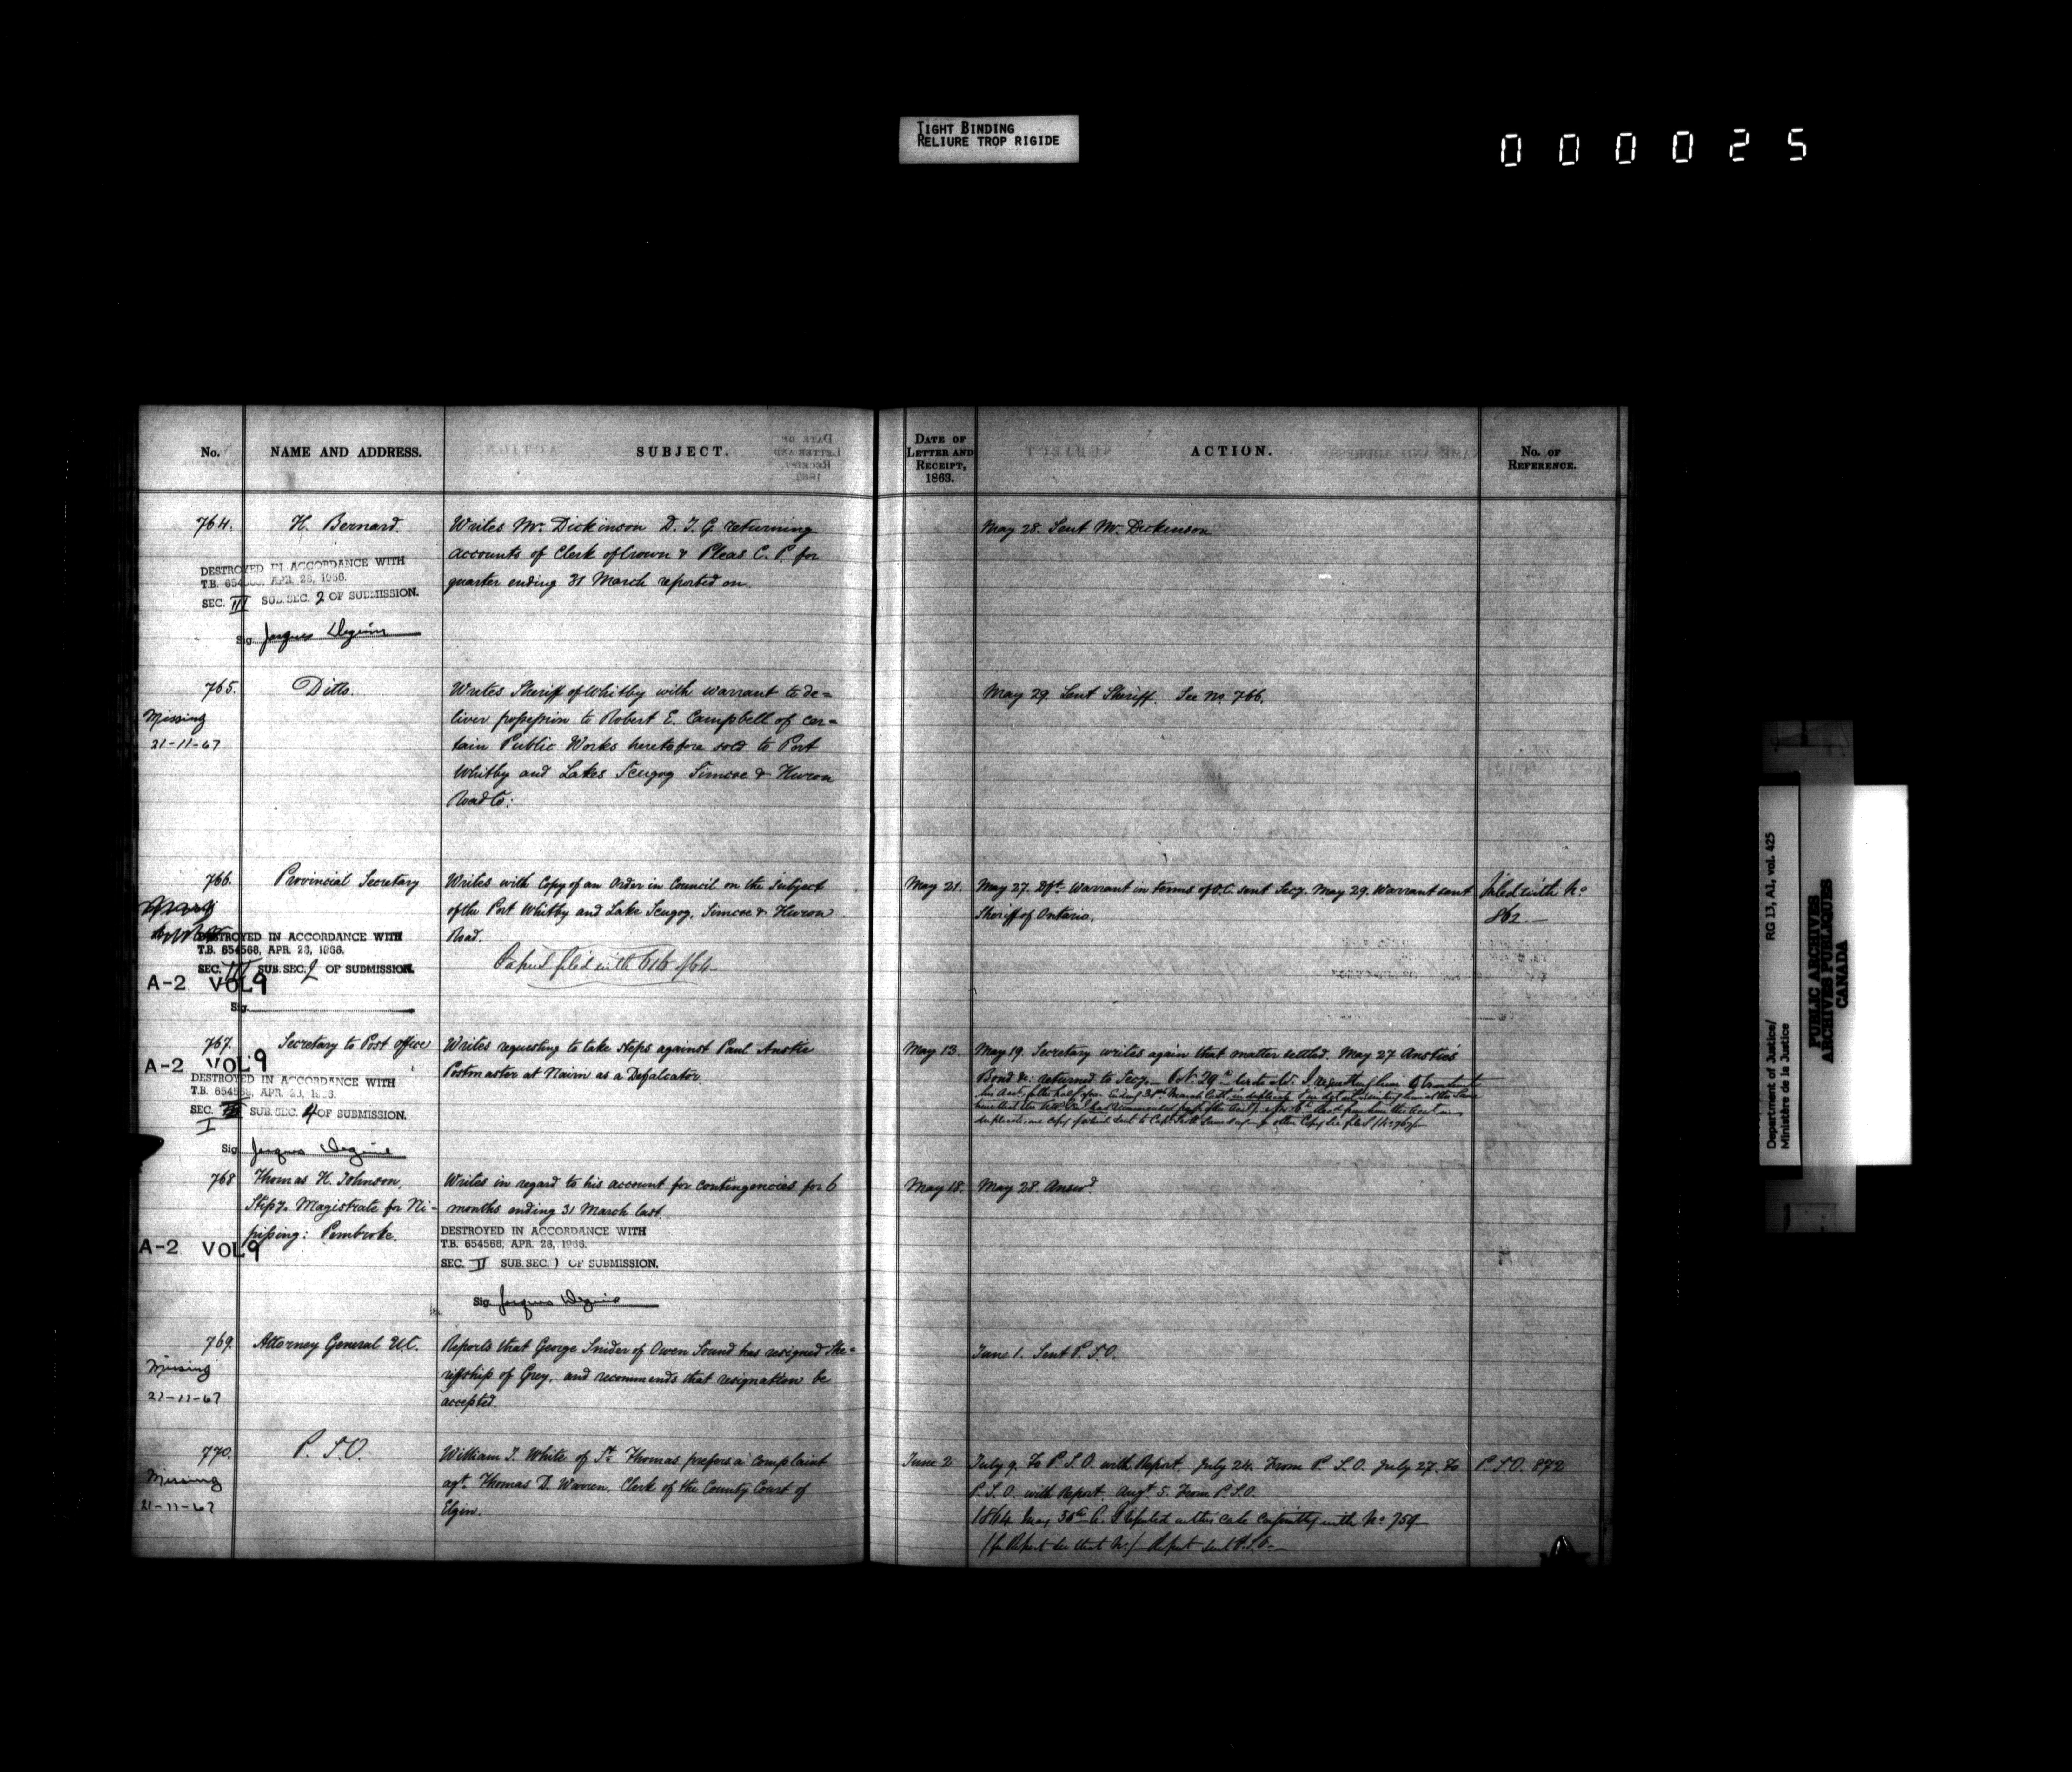 TIGHT BINDING
RELIURE TROP RIGIDE
000025
No.
NAME AND ADDRESS.
SUBJECT.
DATE OF
LETTER AND
RECEIPT,
1863.
ACTION.
No. OF
REFERENCE.
764.
H. Bernard.
Writes Mr. Dickinson D. I. G. returning
accounts of Clerk of Crown & Pleas C. P. for
quarter ending 31 March reported on.
May 28. Sent Mr. Dickinson
DESTROYED IN ACCORDANCE WITH
T.B. 654568, APR. 28, 1966.
SEC. III SUB.SEC. 2 OF SUBMISSION.
Sig. Jacques
765.
Ditto.
Missing
21-11-67
Writes Sheriff of Whitby with warrant to de=
liver possession to Robert E. Campbell of cer=
tain Public Works heretofore sold to Port
Whitby and Lakes Scugog Simcoe & Huron
Road Co:
May 29. Sent Sheriff. See No. 766.
766.
Provincial Secretary
Writes with Copy of an Order in Council on the subject
of the Port Whitby and Lake Scugog, Simcoe & Huron
Road.
Papers filed with 616 of 64
May 21.
May 27. Dft. Warrant in terms of O.C. sent Secy. May 29. Warrant sent
Sheriff of Ontario.
filed with No
862.—
DESTROYED IN ACCORDANCE WITH
T.B. 654568, APR. 28, 1966.
SEC. III SUB.SEC. 2 OF SUBMISSION.
A-2 VOL 9
Sig.
767.
Secretary to Post office
A-2 VOL 9
Writes requesting to take steps against Paul Anstie
Postmaster at Nairn as a Defalcator
May 13.
May 19. Secretary writes again that matter settled. May 27 Anstie's
Bond &c: returned to Secy.
ending 31st March last, in duplicate
duplicate, one copy of which sent to Capt.
DESTROYED IN ACCORDANCE WITH
T.B. 654568, APR. 28, 1966.
SEC. I SUB.SEC. 4 OF SUBMISSION.
Sig. Jacques
768
Thomas H. Johnson,
Stipy. Magistrate for Ni-
pissing: Pembroke.
A-2 VOL 9
Writes in regard to his account for contingencies for 6
months ending 31 March last.
May 18.
May 28. Answd.
DESTROYED IN ACCORDANCE WITH
T.B. 654568, APR. 28, 1966.
SEC. II SUB.SEC. 1 OF SUBMISSION.
Sig. Jacques
769.
Attorney General U.C.
Missing
21-11-67
Reports that George Snider of Owen Sound has resigned She=
riffship of Grey, and recommends that resignation be
accepted.
June 1. Sent P. S. O.
770.
P. S. O.
Missing
21-11-67
William J. White of St. Thomas prefers a complaint
agt. Thomas D. Warren, Clerk of the County Court of
Elgin.
June 2
July 9. To P. S. O. with Report. July 24. From P. S. O. July 27. To
P. S. O. with Report. Augt. 5. From P. S. O.
1864 May 30th Reported in this case conjointly with No 759—
(for Report see that No.) Report sent P.S.O.—
P. S. O. 872
Department of Justice/
Ministère de la Justice
RG 13, A1, vol. 425
PUBLIC ARCHIVES
ARCHIVES PUBLIQUES
CANADA